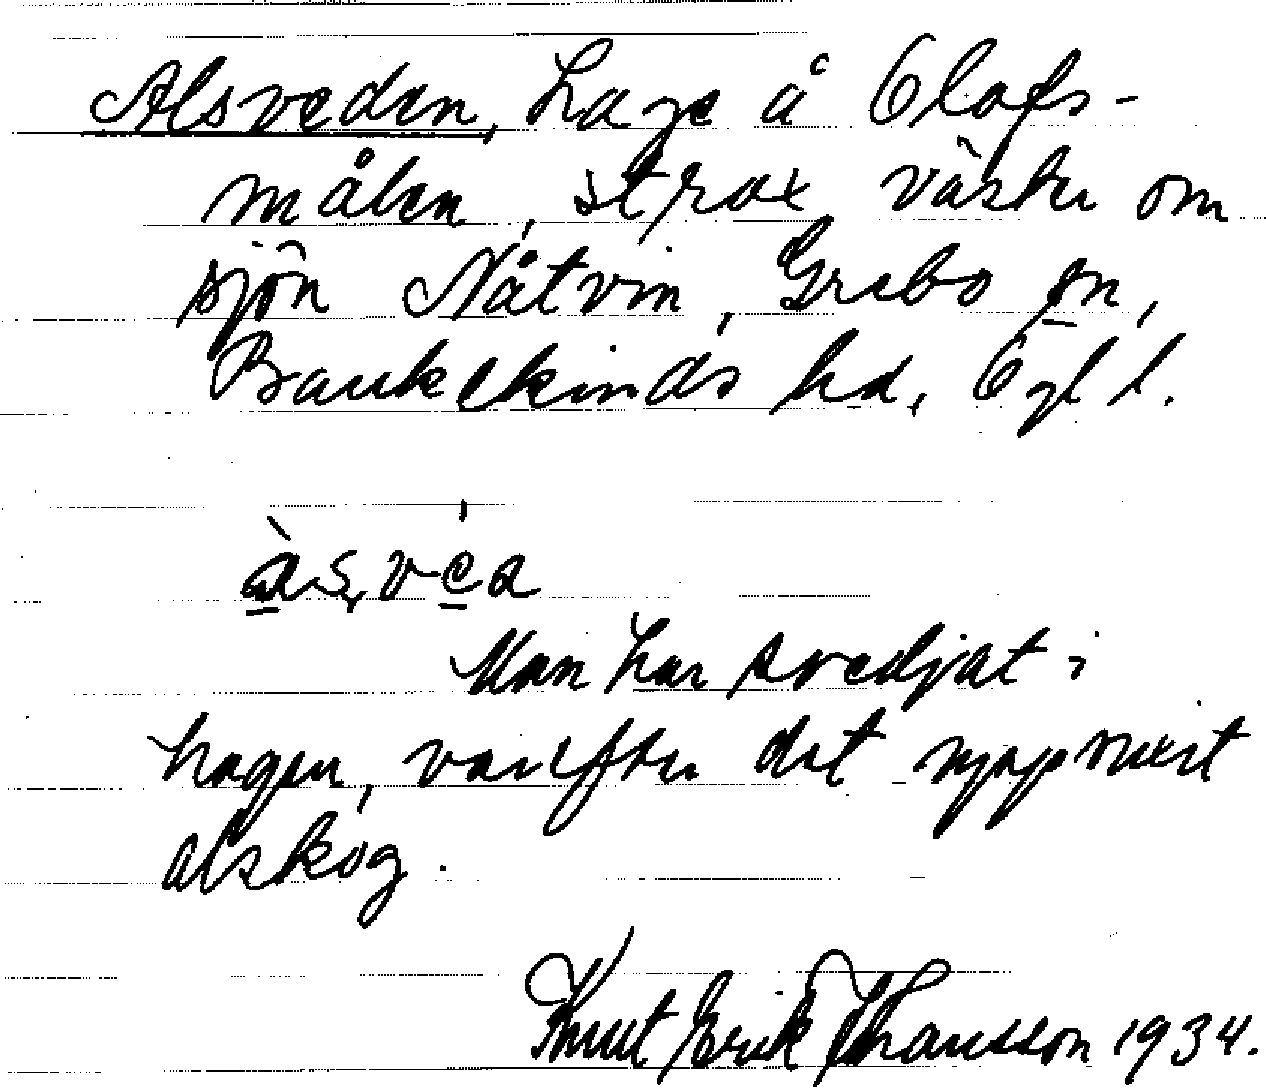 Alsveden, hage å Olofs-
målen, strax väster om
sjön Nåtvin, Grebo sn,
Bankekinds hd, Ögl l.
àsvéa
Man har svedjat i
hagen, varefter det uppvuxit
alskog.
Knut Erik Johansson 1934.